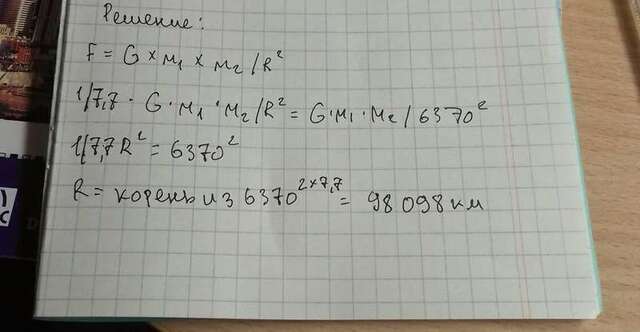 Решение:
F = G × м₁ × м₂ / R²
1/7,7 · G · м₁ · м₂ / R² = G · м₁ · м₂ / 6370²
1/7,7 R² = 6370²
R = корень из 6370²ˣ⁷,⁷ = 98 098 км